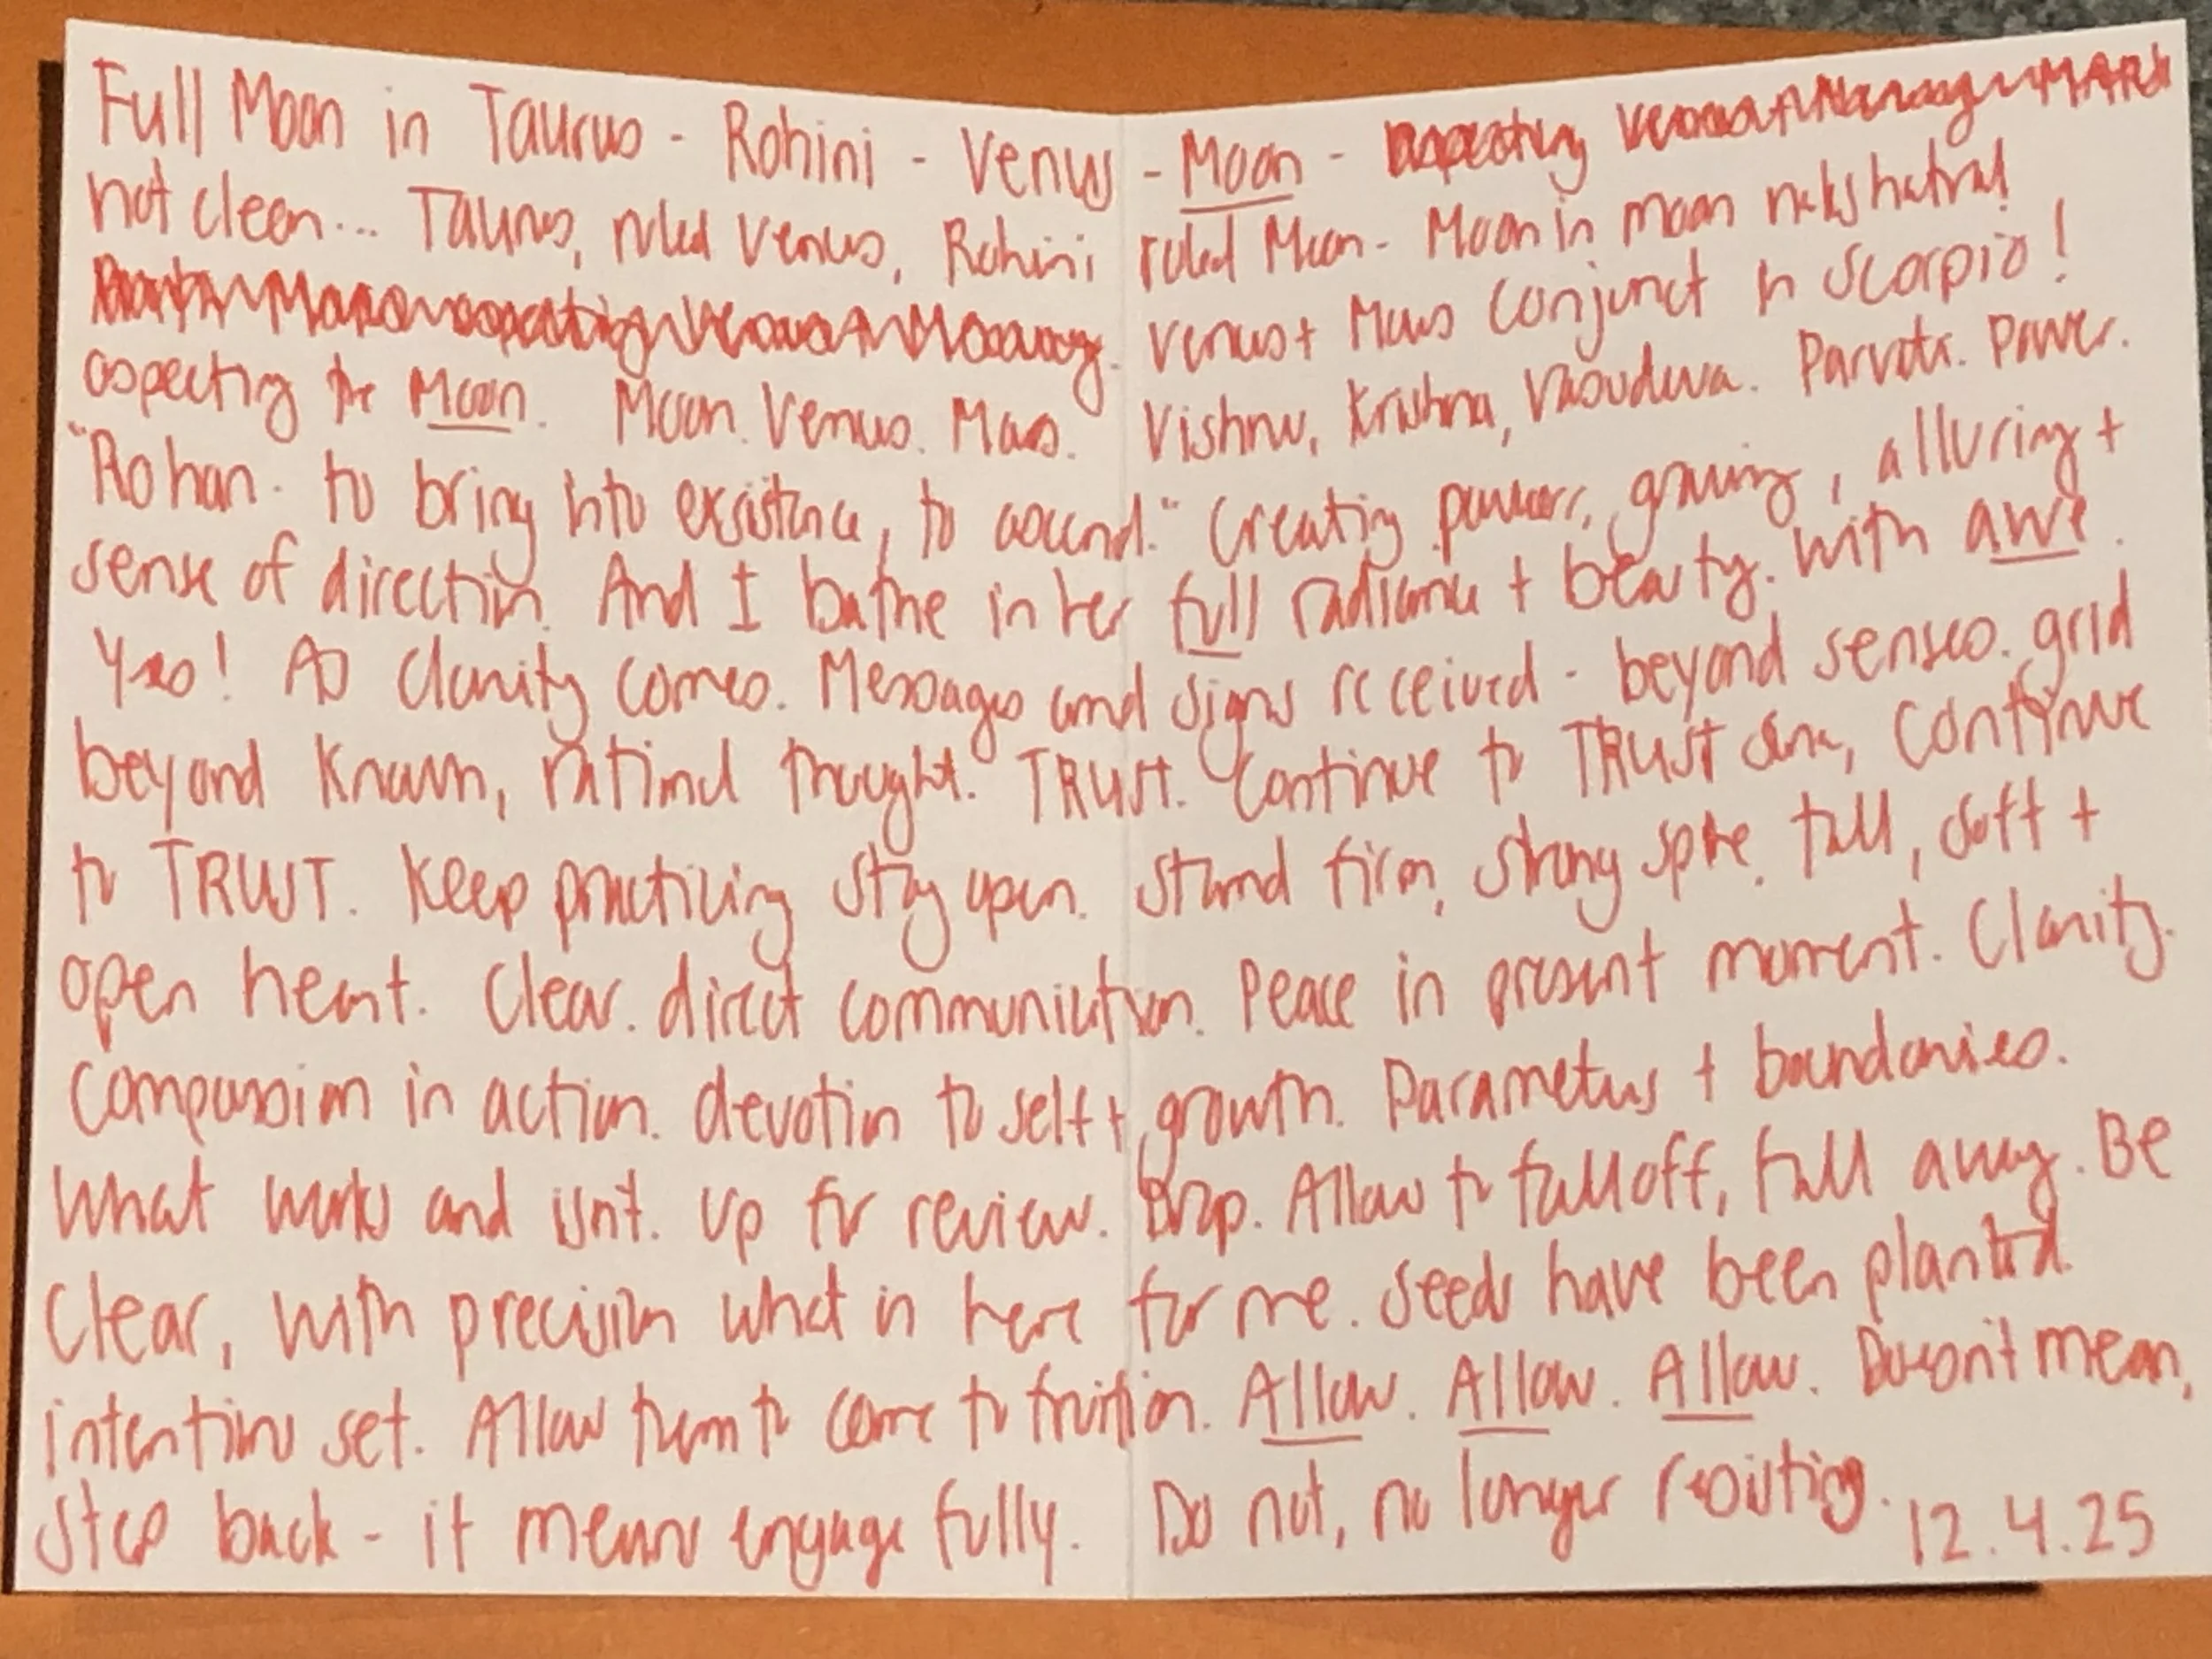 Full Moon in Taurus - Rohini - Venus - Moon -
not clean... Taurus, ruled Venus, Rohini ruled Moon - Moon in moon nakshatra!
Venus + Mars conjunct in Scorpio!
aspecting the Moon. Moon. Venus. Mars. Vishnu, Krishna, Vasudeva. Parvati. Power.
"Rohan - to bring into existence, to ascend." Creating power, growing, alluring +
sense of direction. And I bathe in her full radiance + beauty. With awe.
Yes! As clarity comes. Messages and signs received - beyond senses. grid
beyond known, rational thought. TRUST. Continue to TRUST continue
to TRUST. Keep practicing stay open. Stand firm, strong spine, tall, soft +
open heart. Clear. direct communication. Peace in present moment. Clarity.
Compassion in action. devotion to self + growth. Parameters + boundaries.
What works and isn't. Up for review. Drop. Allow to fall off, fall away. Be
Clear, with precision what is here for me. Seeds have been planted.
intentions set. Allow them to come to fruition. Allow. Allow. Allow. Doesn't mean,
step back - it means engage fully. Do not, no longer resisting.
12.4.25